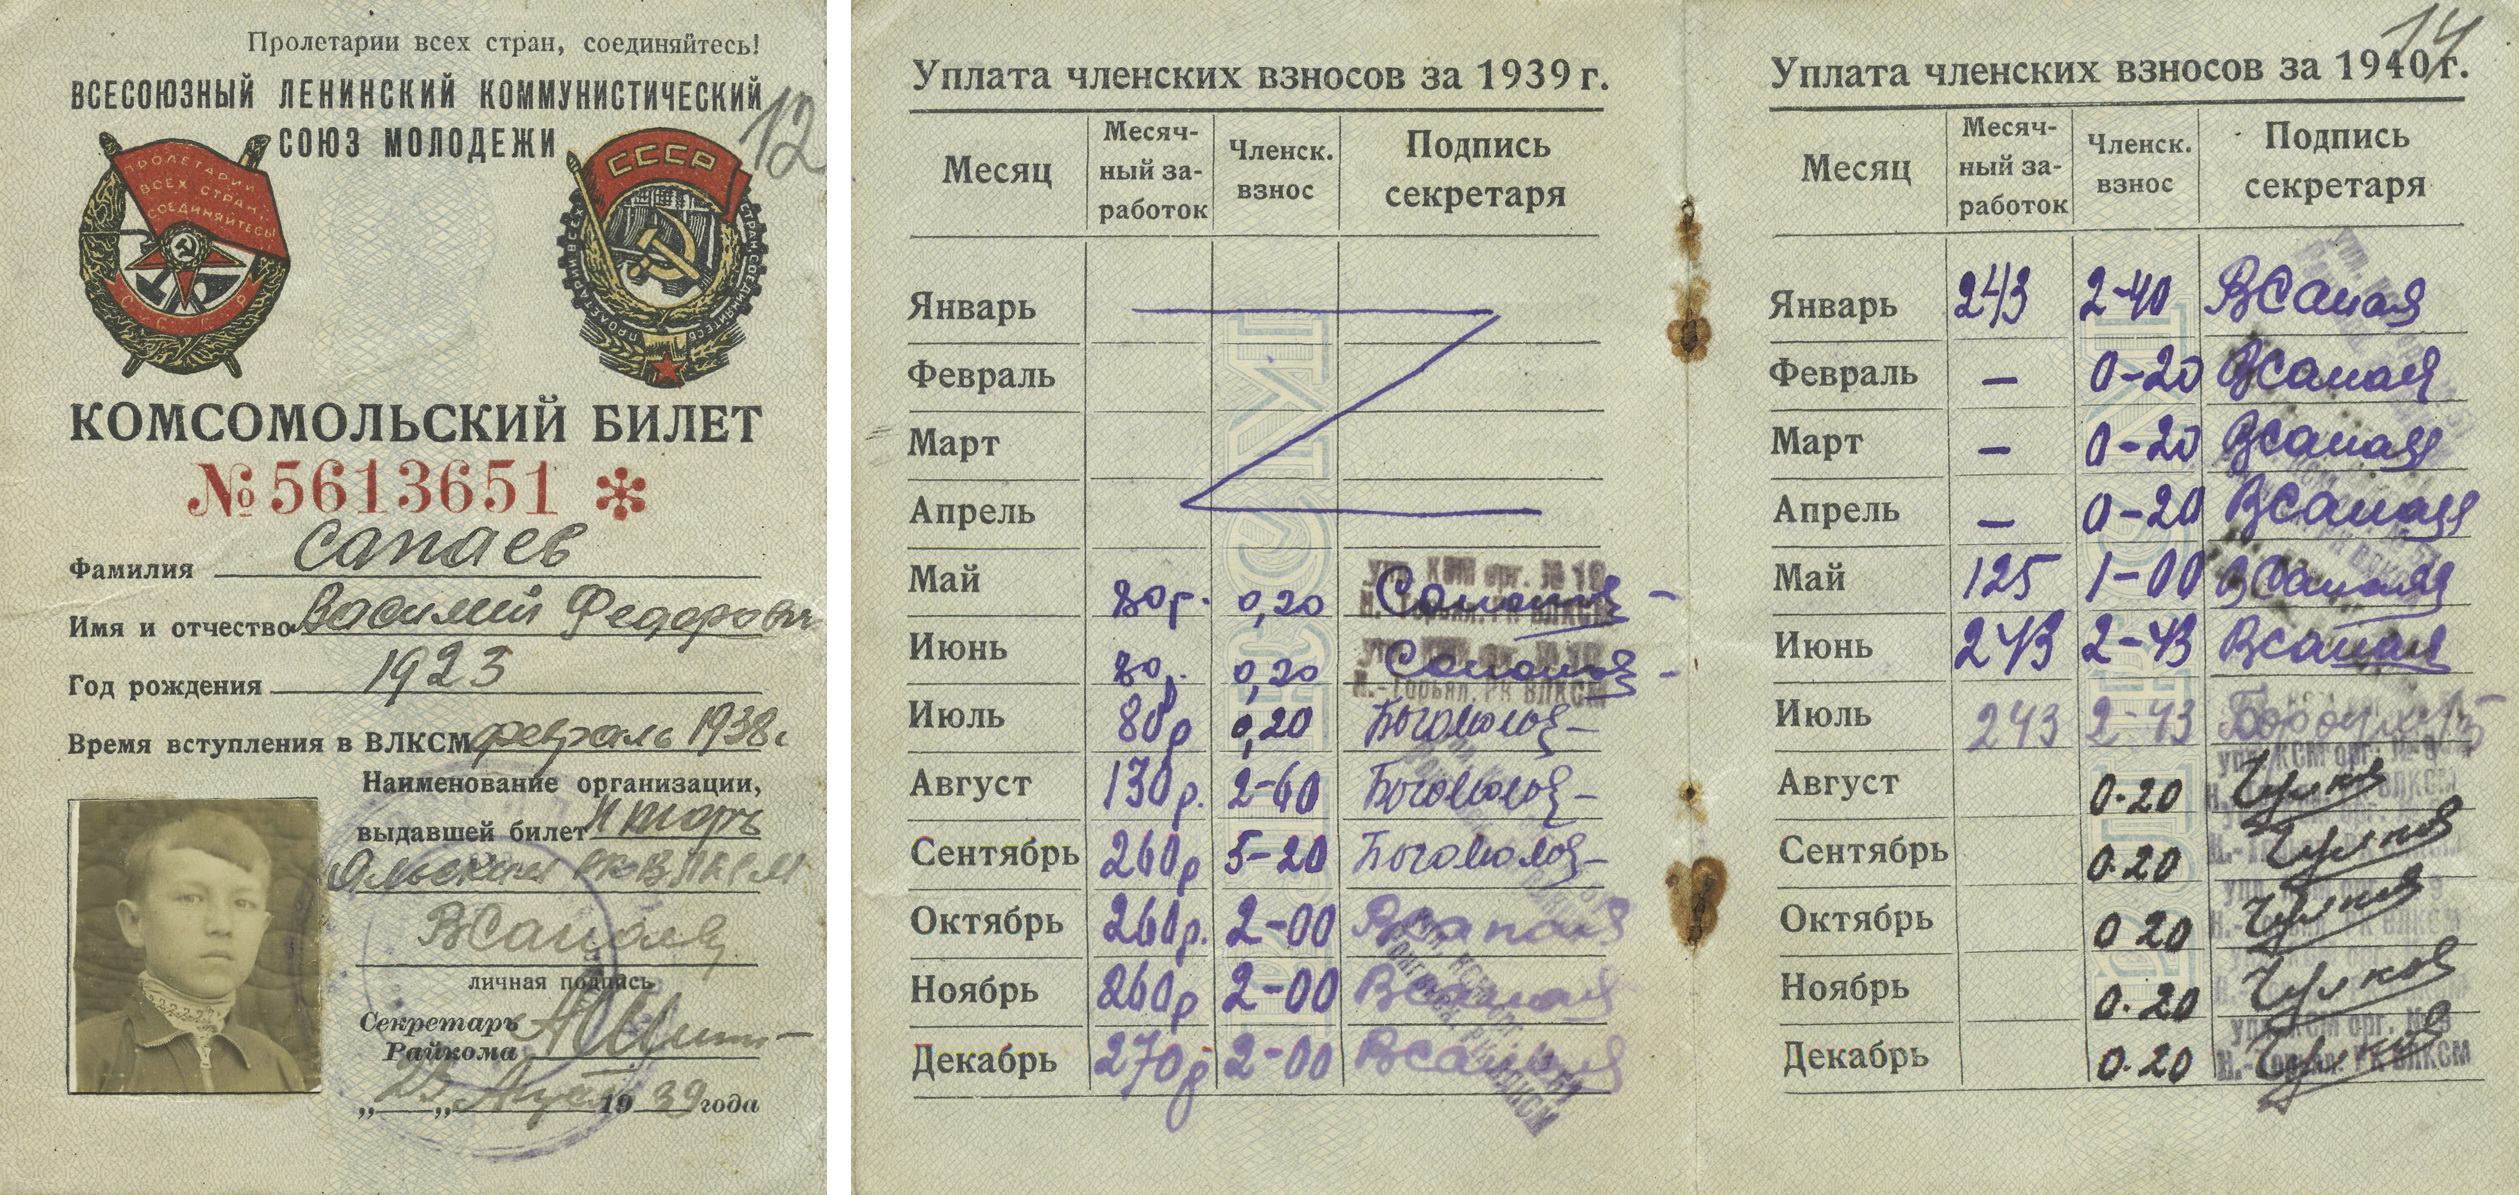 Пролетарии всех стран, соединяйтесь!
ВСЕСОЮЗНЫЙ ЛЕНИНСКИЙ КОММУНИСТИЧЕСКИЙ
СОЮЗ МОЛОДЕЖИ
12
ПРОЛЕТАРИИ
ВСЕХ СТРАН,
СОЕДИНЯЙТЕСЬ!
СССР
СССР
ПРОЛЕТАРИИ ВСЕХ СТРАН СОЕДИНЯЙТЕСЬ
КОМСОМОЛЬСКИЙ БИЛЕТ
№ 5613651 *
Фамилия Сапаев
Имя и отчество Василий Федорович
Год рождения 1923
Время вступления в ВЛКСМ февраль 1938 г
Наименование организации,
выдавшей билет Н Торъ
яльский РК ВЛКСМ
ВСапаев
личная подпись
Секретарь
Райкома
„25„ 1939 года
Уплата членских взносов за 1939 г.
Месяц Месячный заработок Членск. взнос Подпись секретаря
Январь
Февраль
Март
Апрель
Май 80 г. 0,20 Сапаев
Июнь 80 р. 0,20 Сапаев
Июль 80 р 0,20 Боголюбов
Август 130 р. 2-60 Боголюбов
Сентябрь 260 р 5-20 Боголюбов
Октябрь 260 р. 2-00 ВСапаев
Ноябрь 260 р 2-00 ВСапаев
Декабрь 270 р 2-00 ВСапаев
упр. КСМ орг. № 18
Н.-Торьял. РК ВЛКСМ
14
Уплата членских взносов за 1940 г.
Месяц Месячный заработок Членск. взнос Подпись секретаря
Январь 243 2-40 ВСапаев
Февраль — 0-20 ВСапаев
Март — 0-20 ВСапаев
Апрель — 0-20 ВСапаев
Май 125 1-00 ВСапаев
Июнь 243 2-43 ВСапаев
Июль 243 2-43
Август 0.20 Чулков
Сентябрь 0.20 Чулков
Октябрь 0 20 Чулков
Ноябрь 0.20 Чулков
Декабрь 0.20 Чулков
упр. КСМ орг. № 9
Н.-Торьял. РК ВЛКСМ